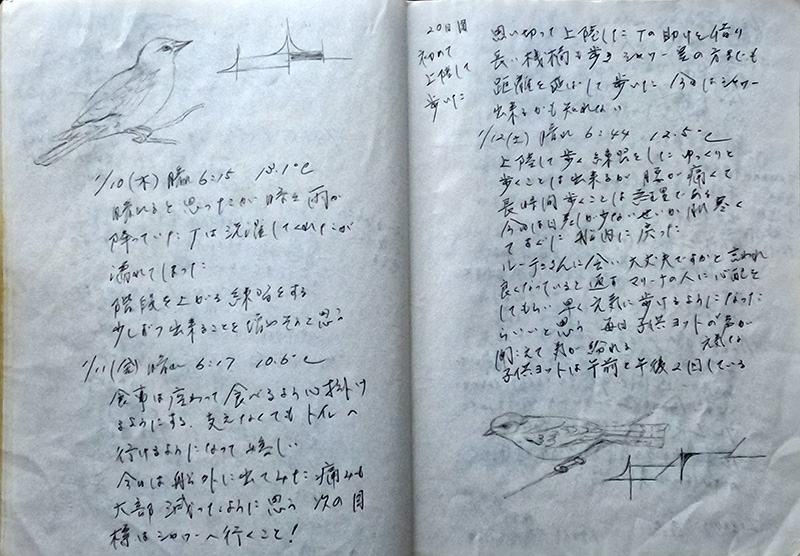 1/10(木) 晴れ 6:15 13.1℃
晴れると思ったが時々雨が
降っていた Tは洗濯してくれたが
濡れてしまった
階段を上がる練習をする
少しずつ出来ることを増やそうと思う
1/11(金) 晴れ 6:17 10.6℃
食事は座わって食べるよう心掛け
るようにする。支えなくてもトイレへ
行けるようになって嬉しい
今日は船外に出てみた 痛みも
大部減ったように思う 次の目
標はシャワーへ行くこと!
20日目
初めて
上陸して
歩いた
思い切って上陸した Tの助けを借り
長い桟橋を歩き シャワー室の方までも
距離を延ばして歩いた 今日はシャワー
出来るかも知れない
1/12(土) 晴れ 6:44 12.5℃
上陸して歩く練習をした ゆっくりと
歩くことは出来るが 腰が痛くて
長時間歩くことは無理である
今日は日差しが少ないせいか肌寒く
てすぐに船内に戻った
ルーテンさんに会い 大丈夫ですかと言われ
良くなっていると返す マリーナの人に心配を
してもらい 早く元気に歩けるようになった
らいいと思う 毎日子供ヨットの声が
聞こえて気が紛れる 元気な
子供ヨットは午前と午後2回している